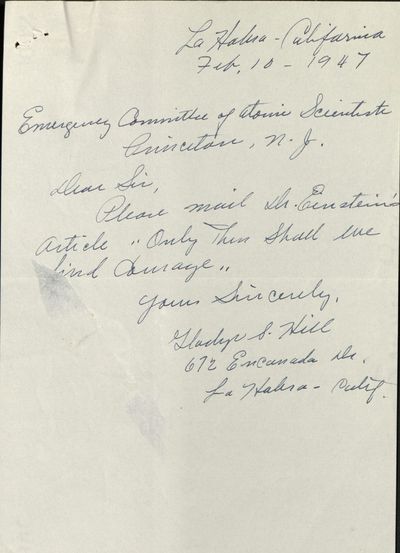 La Habra - California
Feb. 10 - 1947
Emergency Committee of Atomic Scientists
Princeton, N. J.
Dear Sir,
Please mail Dr. Einstein's
article "Only Then Shall We
find Courage"
Yours Sincerely,
Gladys S. Hill
672 Encanada Dr.
La Habra - Calif.